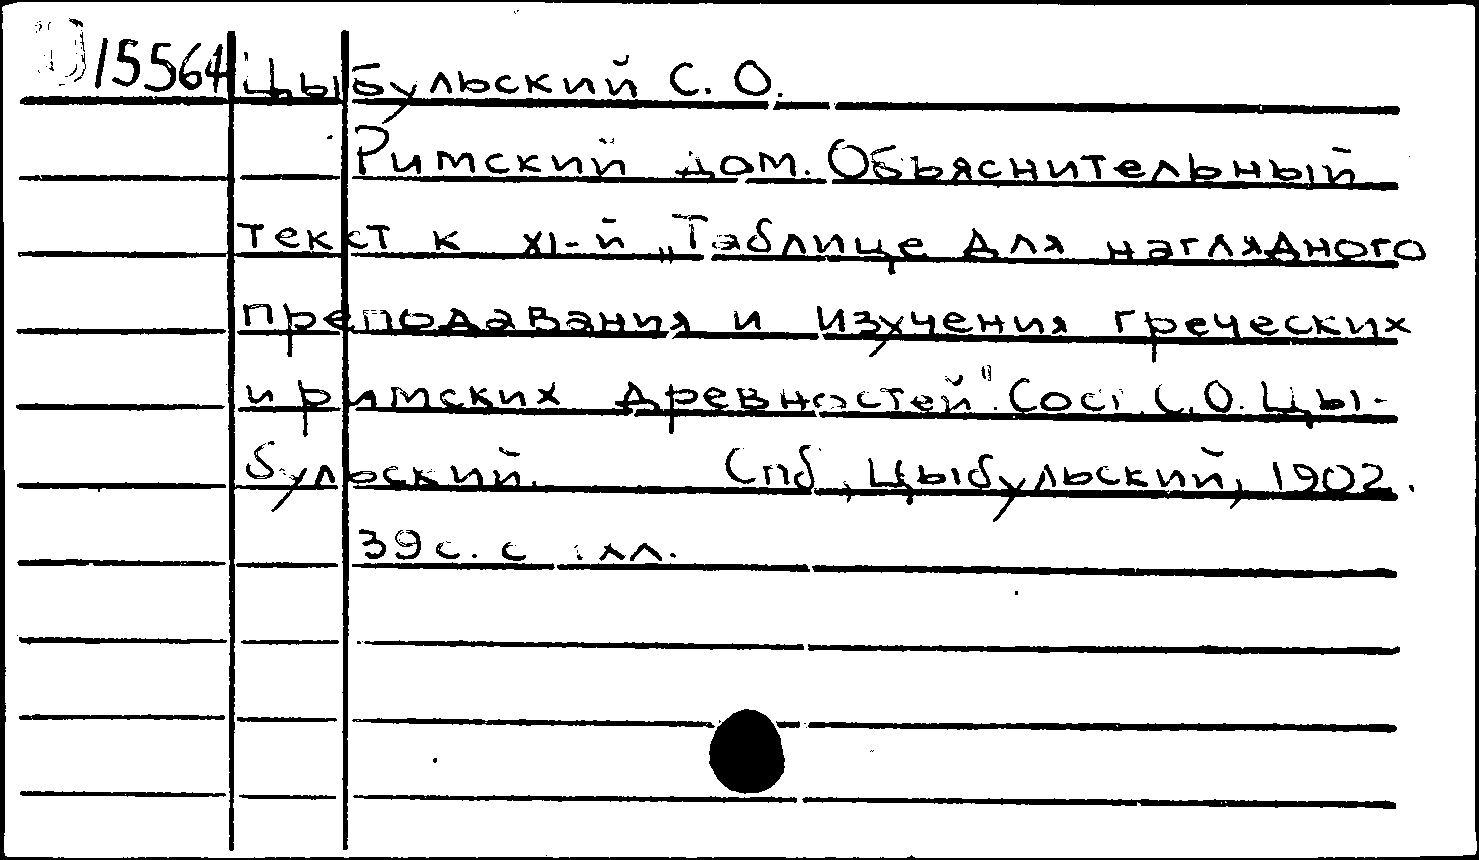 15564 Цыбульский С. О.
Римский дом. Объяснительный
текст к XI-й „Таблице для наглядного
преподавания и изучения греческих
и римских древностей". Сост. С. О. Цы-
бульский. Спб, Цыбульский, 1902.
39 с. с